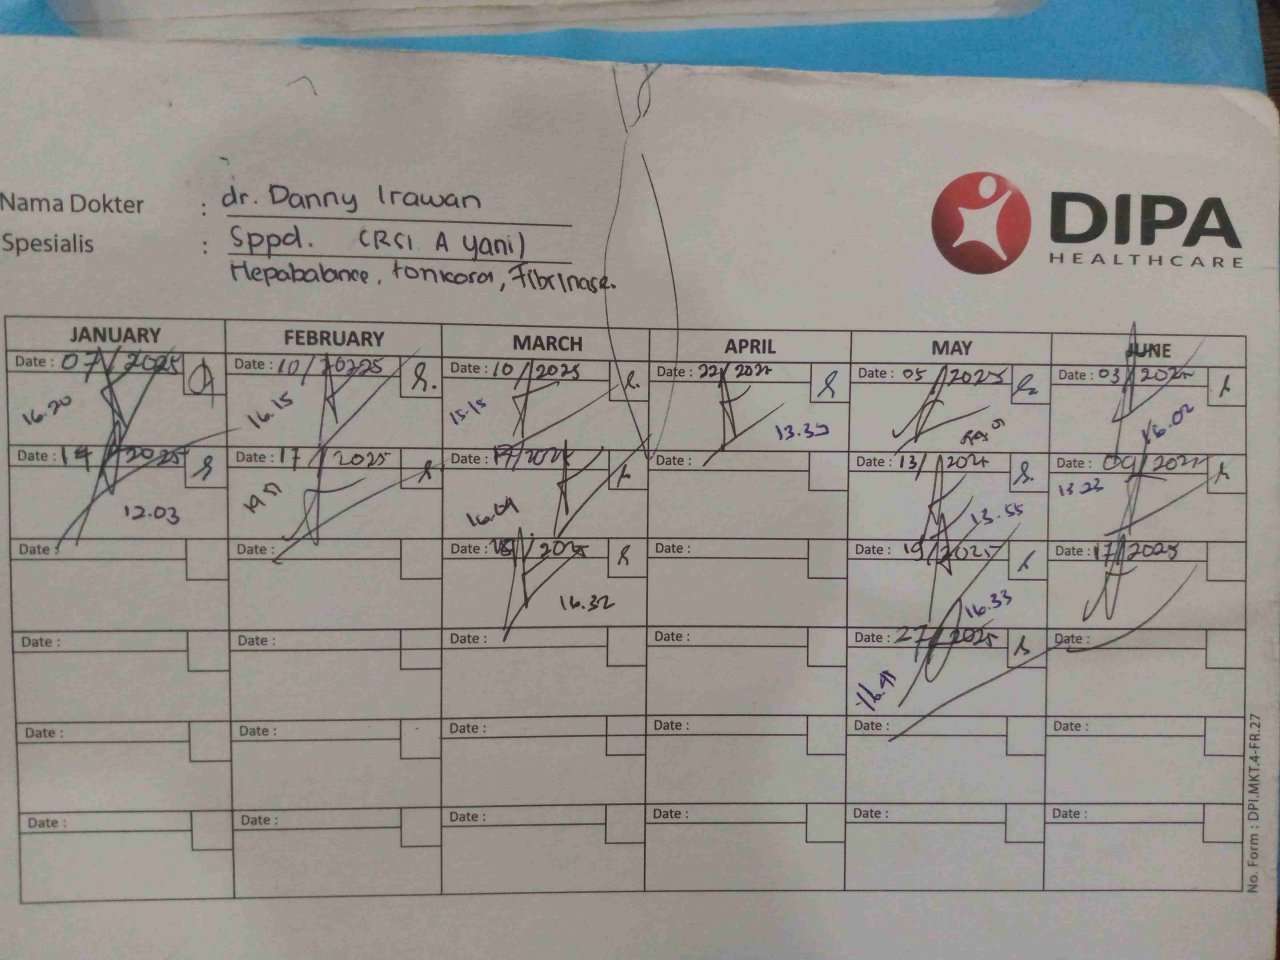 Nama Dokter : dr. Danny Irawan
Spesialis : Sppd. (RSI A Yani)
Hepabalance, tonicoroa, Fibrinase.
DIPA
HEALTHCARE
JANUARY FEBRUARY MARCH APRIL MAY JUNE
Date : 07/2025 Date : 10/20225 Date : 10/2025 Date : 22/202 Date : 05/2025 Date : 03/202
16.20 16.15 15.15 13.35 16.02
Date : 14/2025 Date : 17/2025 Date : 17/202 Date : Date : 13/202 Date : 09/202
12.03 16.09 13.55 13.23
Date : Date : Date : 18/2025 Date : Date : 19/2025 Date : 17/2025
16.32 16.33
Date : Date : Date : Date : Date : 27/2025 Date :
16.41
Date : Date : Date : Date : Date : Date :
Date : Date : Date : Date : Date : Date :
No. Form : DPI.MKT.4-FR.27